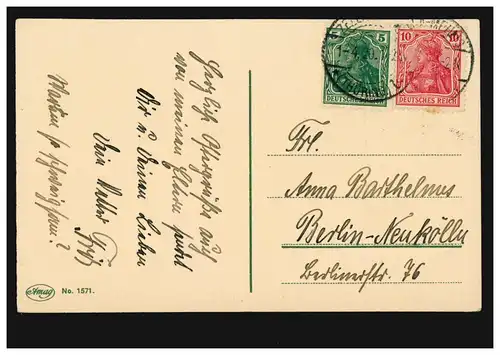 Herzliche Ostergrüße auch
von meinen Eltern sendet
Dir u. Deinen Lieben
Dein Vetter Fritz
Warum so schweigsam?
Amag
No. 1571.
5
DEUTSCHES REICH
10
10
DEUTSCHES REICH
Frl.
Anna Barthelmes
Berlin-Neukölln
Berlinerstr. 76